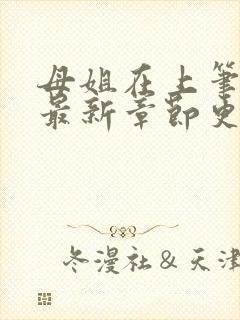 母姐在上笔
最新章节史
冬漫社&天津